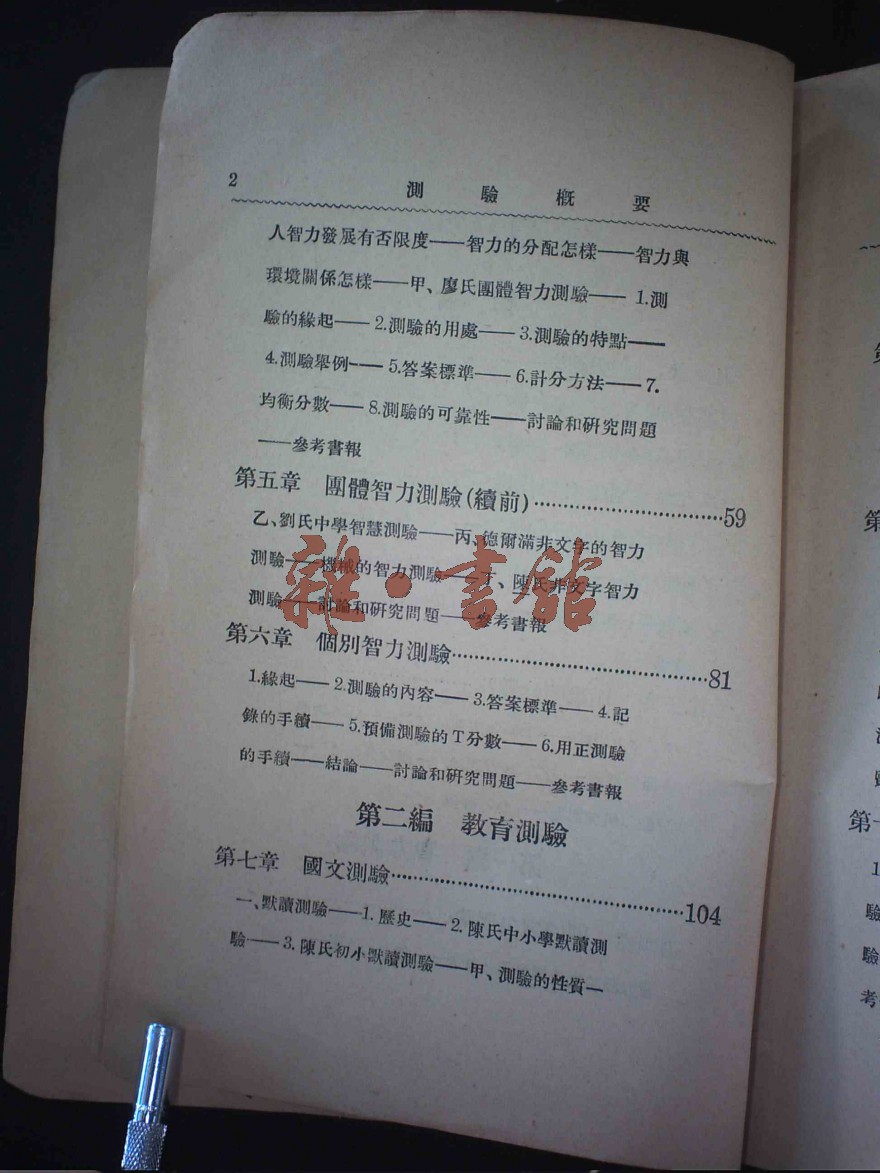 2 測驗概要
人智力發展有否限度——智力的分配怎樣——智力與
環境關係怎樣——甲、廖氏團體智力測驗—— 1.測
驗的緣起—— 2.測驗的用處—— 3.測驗的特點——
4.測驗舉例—— 5.答案標準—— 6.計分方法—— 7.
均衡分數—— 8.測驗的可靠性——討論和研究問題
——參考書報
第五章 團體智力測驗(續前)……………………………59
乙、劉氏中學智慧測驗——丙、德爾滿非文字的智力
測驗——機械的智力測驗——丁、陳氏非文字智力
測驗——討論和研究問題——參考書報
雜·書館
第六章 個別智力測驗……………………………………81
1.緣起—— 2.測驗的內容—— 3.答案標準—— 4.記
錄的手續—— 5.預備測驗的T分數—— 6.用正測驗
的手續——結論——討論和研究問題——參考書報
第二編 教育測驗
第七章 國文測驗…………………………………………104
一、默讀測驗——1. 歷史—— 2. 陳氏中小學默讀測
驗—— 3. 陳氏初小默讀測驗——甲、測驗的性質—
第
1
驗
驗
考